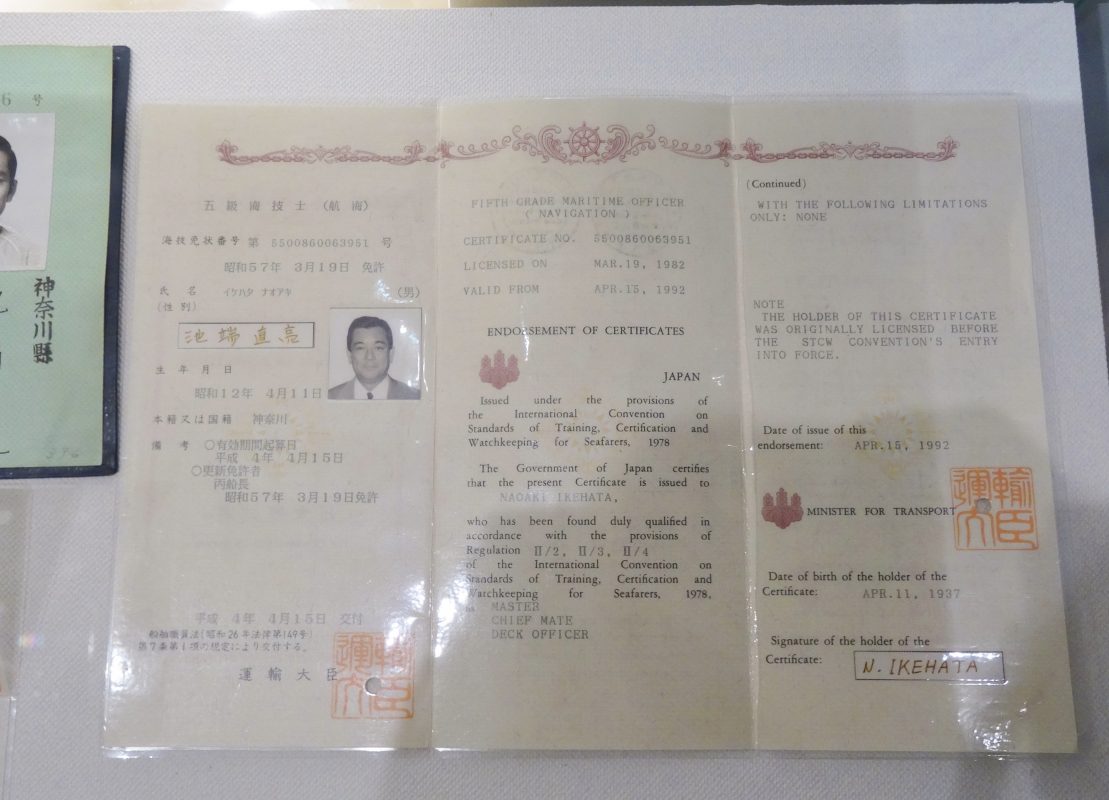 6 号
神奈川縣
五級海技士（航海）
海技免状番号 第 5500860063951 号
昭和57年 3月19日 免許
氏 名 イケハタ ナオアキ （男）
（性別）
池端直高
生年月日
昭和12年 4月11日
本籍又は国籍 神奈川
備 考 ○有効期間起算日
平成 4年 4月15日
○更新免許者
丙船長
昭和57年 3月19日免許
平成 4年 4月15日 交付
船舶職員法(昭和26年法律第149号)
第7条第1項の規定により交付する。
運輸大臣
FIFTH GRADE MARITIME OFFICER
( NAVIGATION )
CERTIFICATE NO. 5500860063951
LICENSED ON MAR.19, 1982
VALID FROM APR.15, 1992
ENDORSEMENT OF CERTIFICATES
JAPAN
Issued under the provisions of
the International Convention on
Standards of Training, Certification and
Watchkeeping for Seafarers, 1978
The Government of Japan certifies
that the present Certificate is issued to
NAOAKI IKEHATA,
who has been found duly qualified in
accordance with the provisions of
Regulation Ⅱ/2, Ⅱ/3, Ⅱ/4
of the International Convention on
Standards of Training, Certification and
Watchkeeping for Seafarers, 1978,
as MASTER
CHIEF MATE
DECK OFFICER
(Continued)
WITH THE FOLLOWING LIMITATIONS
ONLY: NONE
NOTE
THE HOLDER OF THIS CERTIFICATE
WAS ORIGINALLY LICENSED BEFORE
THE STCW CONVENTION'S ENTRY
INTO FORCE.
Date of issue of this
endorsement: APR.15, 1992
MINISTER FOR TRANSPORT
Date of birth of the holder of the
Certificate: APR.11, 1937
Signature of the holder of the
Certificate: N. IKEHATA